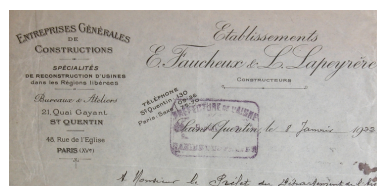 ENTREPRISES GÉNÉRALES
DE
CONSTRUCTIONS
SPÉCIALITÉS
DE RECONSTRUCTION D'USINES
dans les Régions libérées
Bureaux & Ateliers
21, Quai Gayant
ST QUENTIN
48, Rue de l'Eglise
PARIS (XVe)
Etablissements
E. Faucheux & L. Lapeyrère
CONSTRUCTEURS
TÉLÉPHONE
St Quentin 130
PRÉFECTURE DE L'AISNE
Saint-Quentin, le 8 Janvier 1922
A Monsieur le Préfet du Département de l'